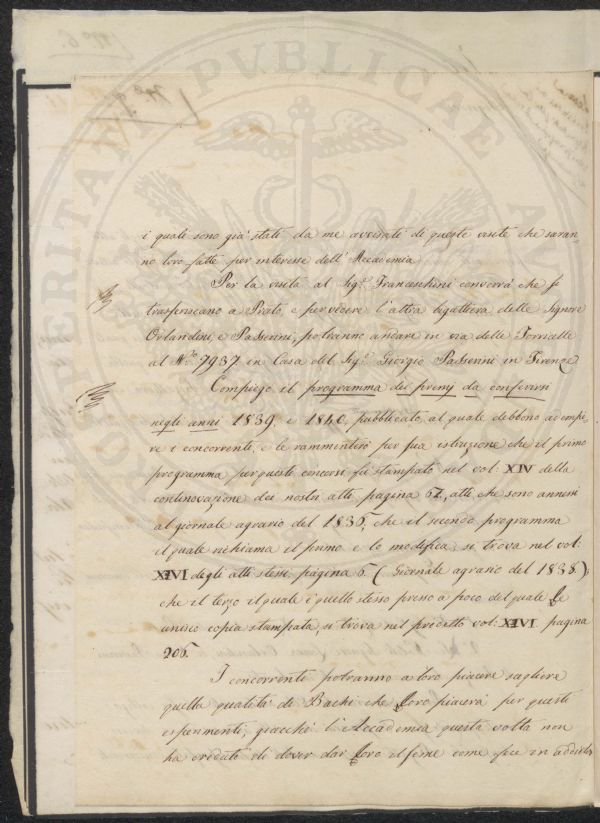 PROSPERITATI PUBLICAE AU
N.° 6.
N.° 7
i quali sono già stati da me avvisati di queste visite che saran
no loro fatte per interesse dell'Accademia
Per la visita al Sig.r Franceschini converrà che si
trasferiscano a Prato, e per vedere l'altra bigattiera delle Signore
Orlandini, e Passerini, potranno andare in via delle Torricelle
al N.ro 7937 in Casa del Sig.r Giorgio Passerini in Firenze
Compiego il programma dei premj da conferirsi
negli anni 1839. e 1840, pubblicato, al quale debbono adempie
re i concorrenti, e le rammenterò per sua istruzione che il primo
programma per questi concorsi fu stampato nel vol: XIV della
continovazione dei nostri atti pagina 62, atti che sono annessi
al giornale agrario del 1836, che il secondo programma
il quale richiama il primo e lo modifica, si trova nel vol:
XVI degli atti stessi pagina 6 (Giornale agrario del 1838);
che il terzo il quale è quello stesso presso a poco del quale Le
unisco copia stampata, si trova nel predetto vol: XVI pagina
206.
I concorrenti potranno a loro piacere scegliere
quella qualità di Bachi che Loro piacerà per questi
esperimenti, giacchè l'Accademia questa volta non
ha creduto di dover dar Loro il seme come fece in addietro